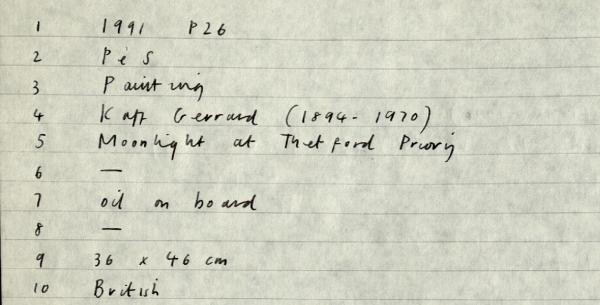 1 1991 P26
2 P é S
3 Painting
4 Kaff Gerrard (1894-1970)
5 Moonlight at Thetford Priory
6 —
7 oil on board
8 —
9 36 x 46 cm
10 British